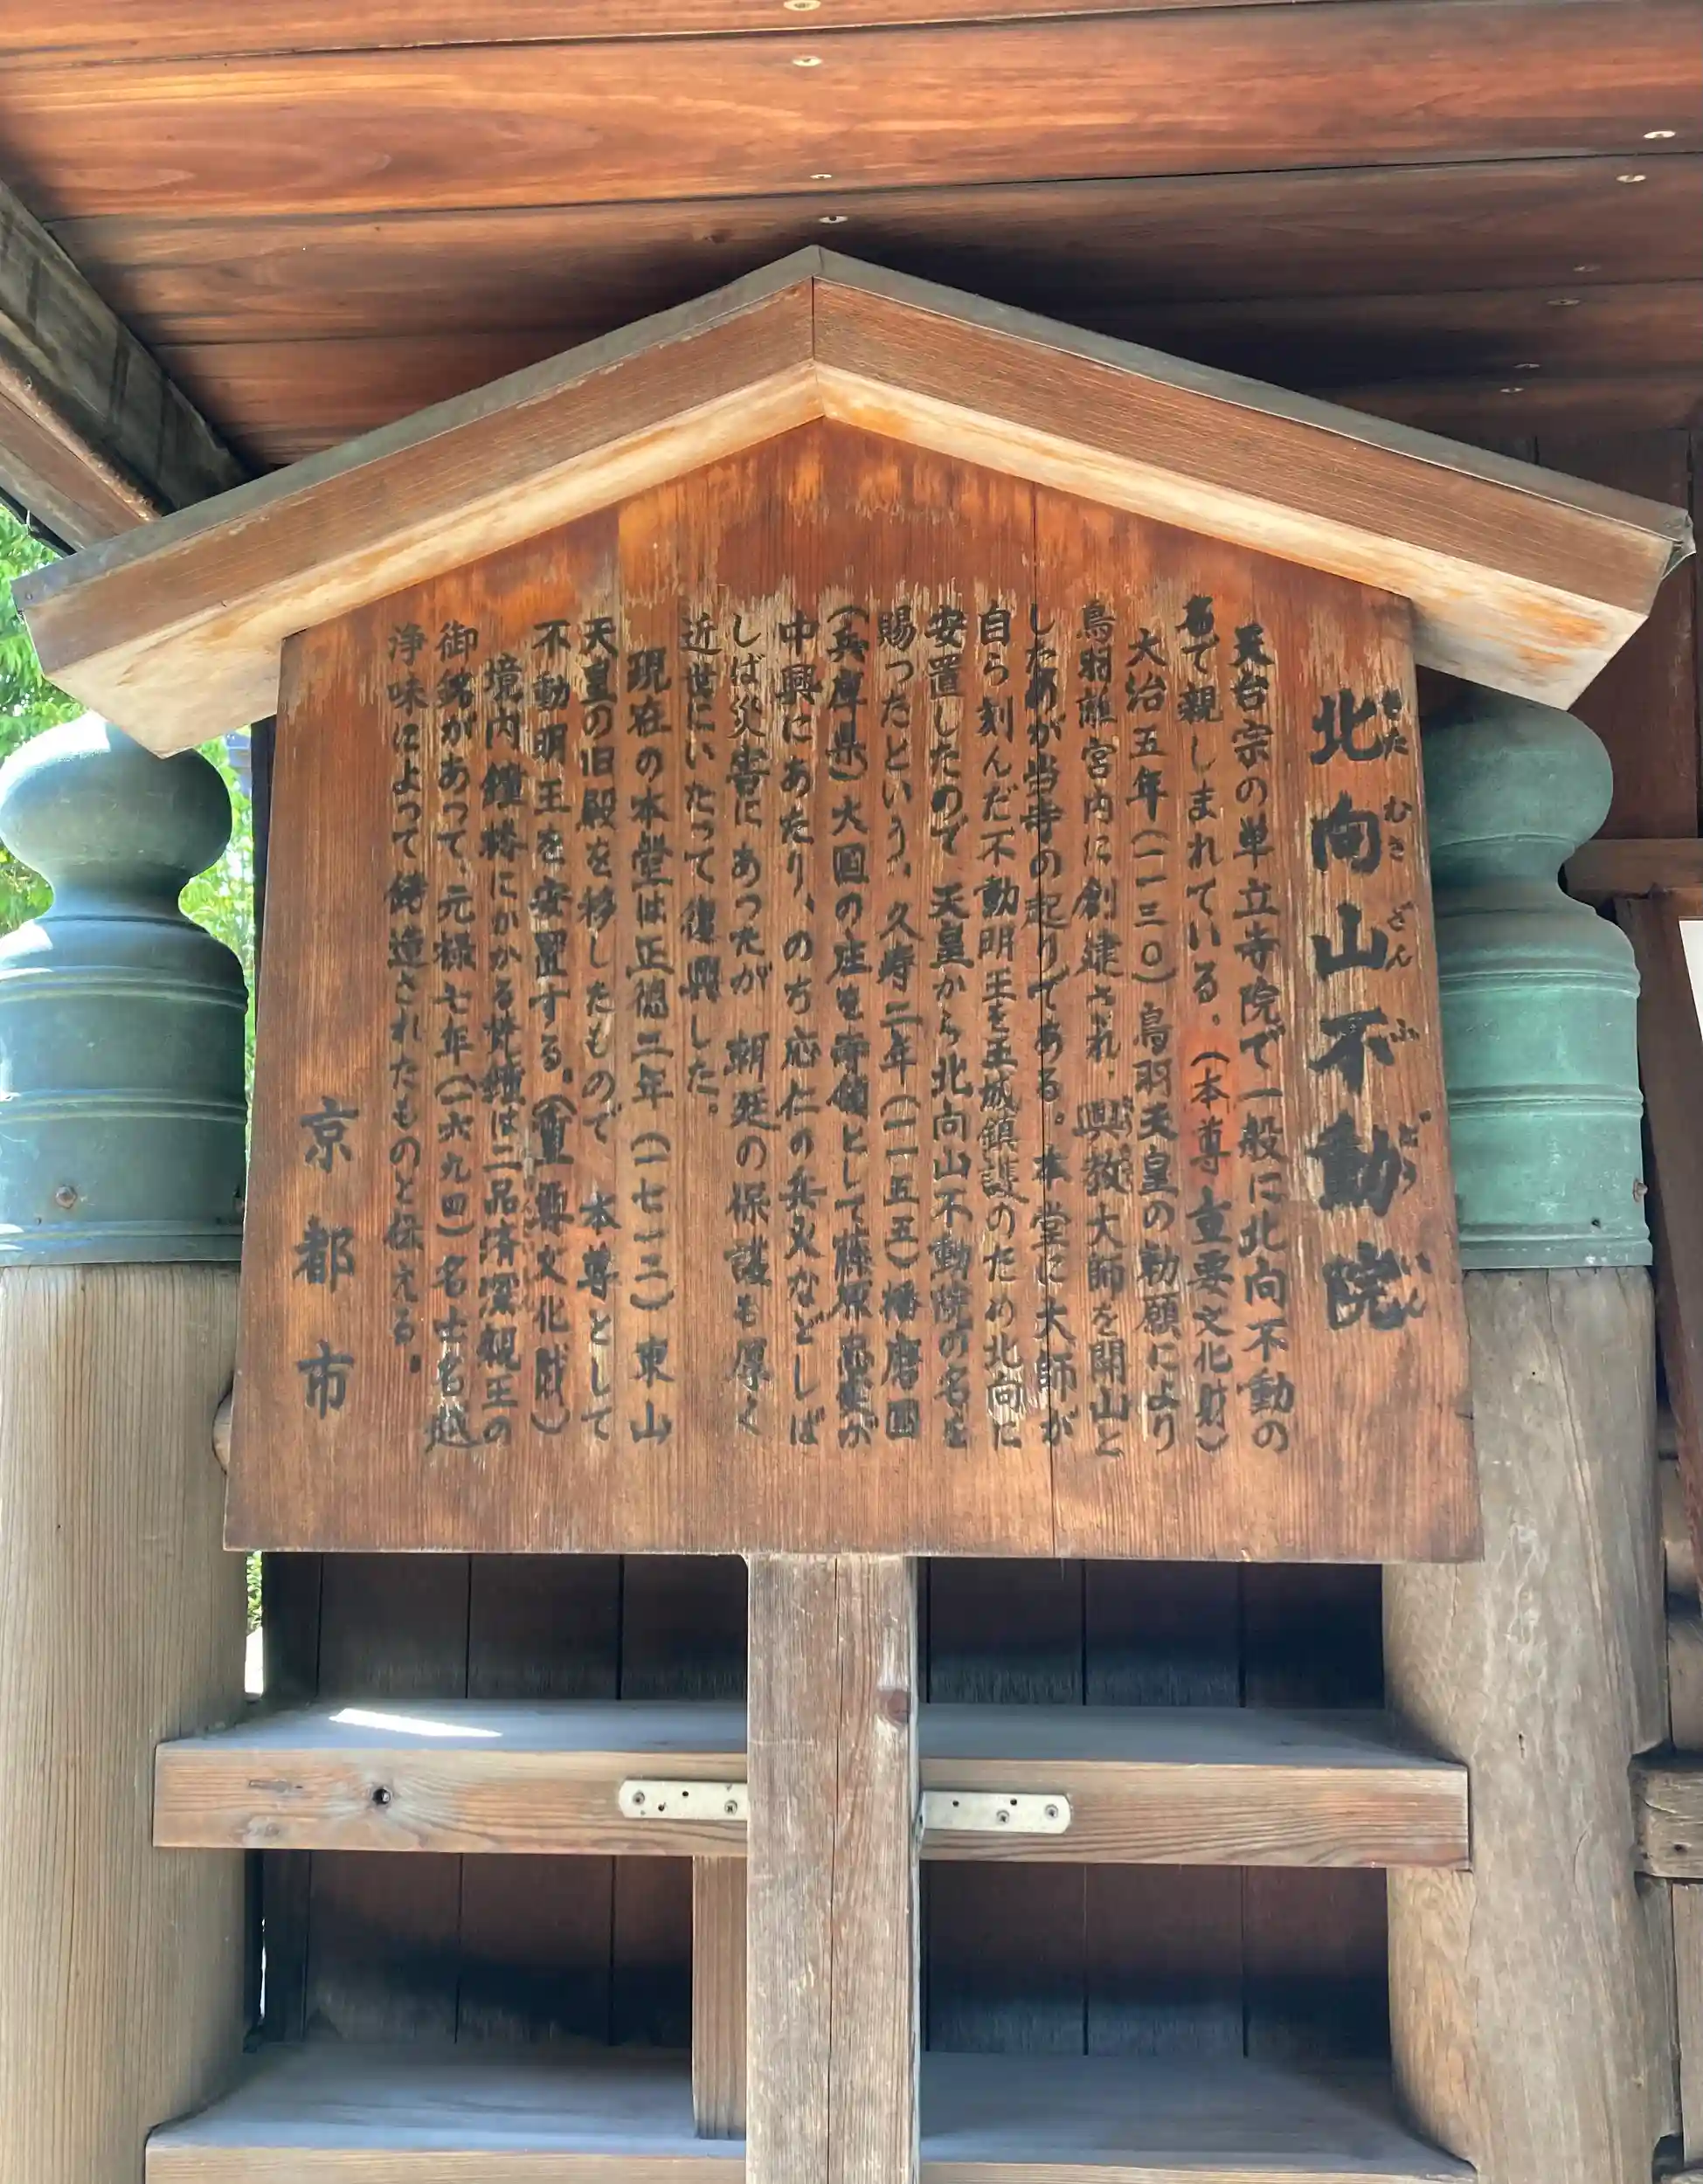 北向山不動院
きたむきざんふどういん
天台宗の単立寺院で一般に北向不動の
名で親しまれている。(本尊 重要文化財)
大治五年(一一三〇)鳥羽天皇の勅願により
鳥羽離宮内に創建され、興教大師を開山と
したのが当寺の起りである。本堂に大師が
自ら刻んだ不動明王を王城鎮護のため北向に
安置したので、天皇から北向山不動院の名を
賜ったという。久寿二年(一一五五)播磨国
(兵庫県)大国の庄を寄領として藤原忠実が
中興にあたり、のち応仁の兵火などしば
しば災害にあったが、朝廷の保護も厚く
近世にいたって復興した。
現在の本堂は正徳二年(一七一二)東山
天皇の旧殿を移したもので、本尊として
不動明王を安置する。(重要文化財)
境内鐘楼にかかる梵鐘は二品済深親王の
御銘があって、元禄七年(一六九四)名士名越
浄味によって鋳造されたものと伝える。
京都市